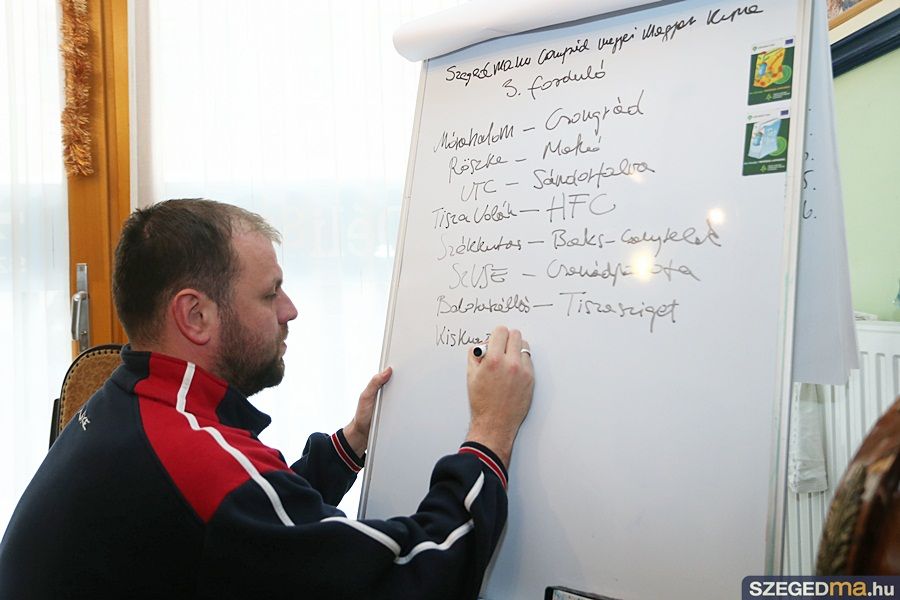 Szegedma.hu Csongrád megyei Magyar Kupa
3. forduló
Mórahalom – Csongrád
Röszke – Makó
UTC – Sándorfalva
Tisza Volán – HFC
Székkutas – Baks-Csanytelek
SZVSE – Csanádpalota
Balotaszállás – Tiszasziget
Kiskun
SZEGEDma.hu